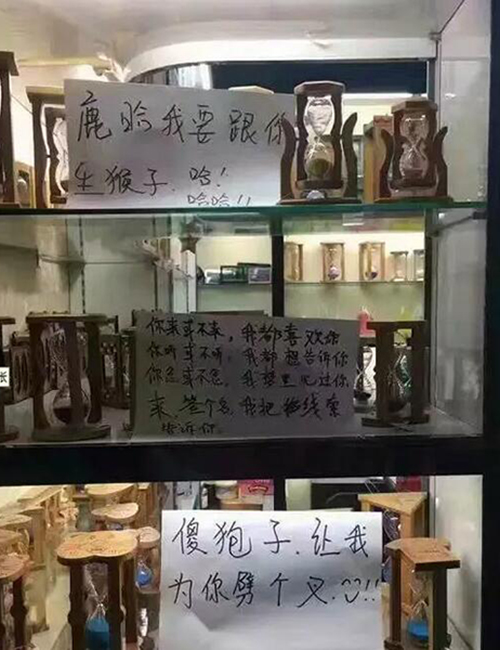 鹿晗我要跟你
生猴子.哈!
哈哈!!
你来或不来,我都喜欢你
你听或不听,我都想告诉你
你忘或不忘,我梦里见过你
来,签个名,我把线索
告诉你.
傻狍子.让我
为你劈个叉.!!